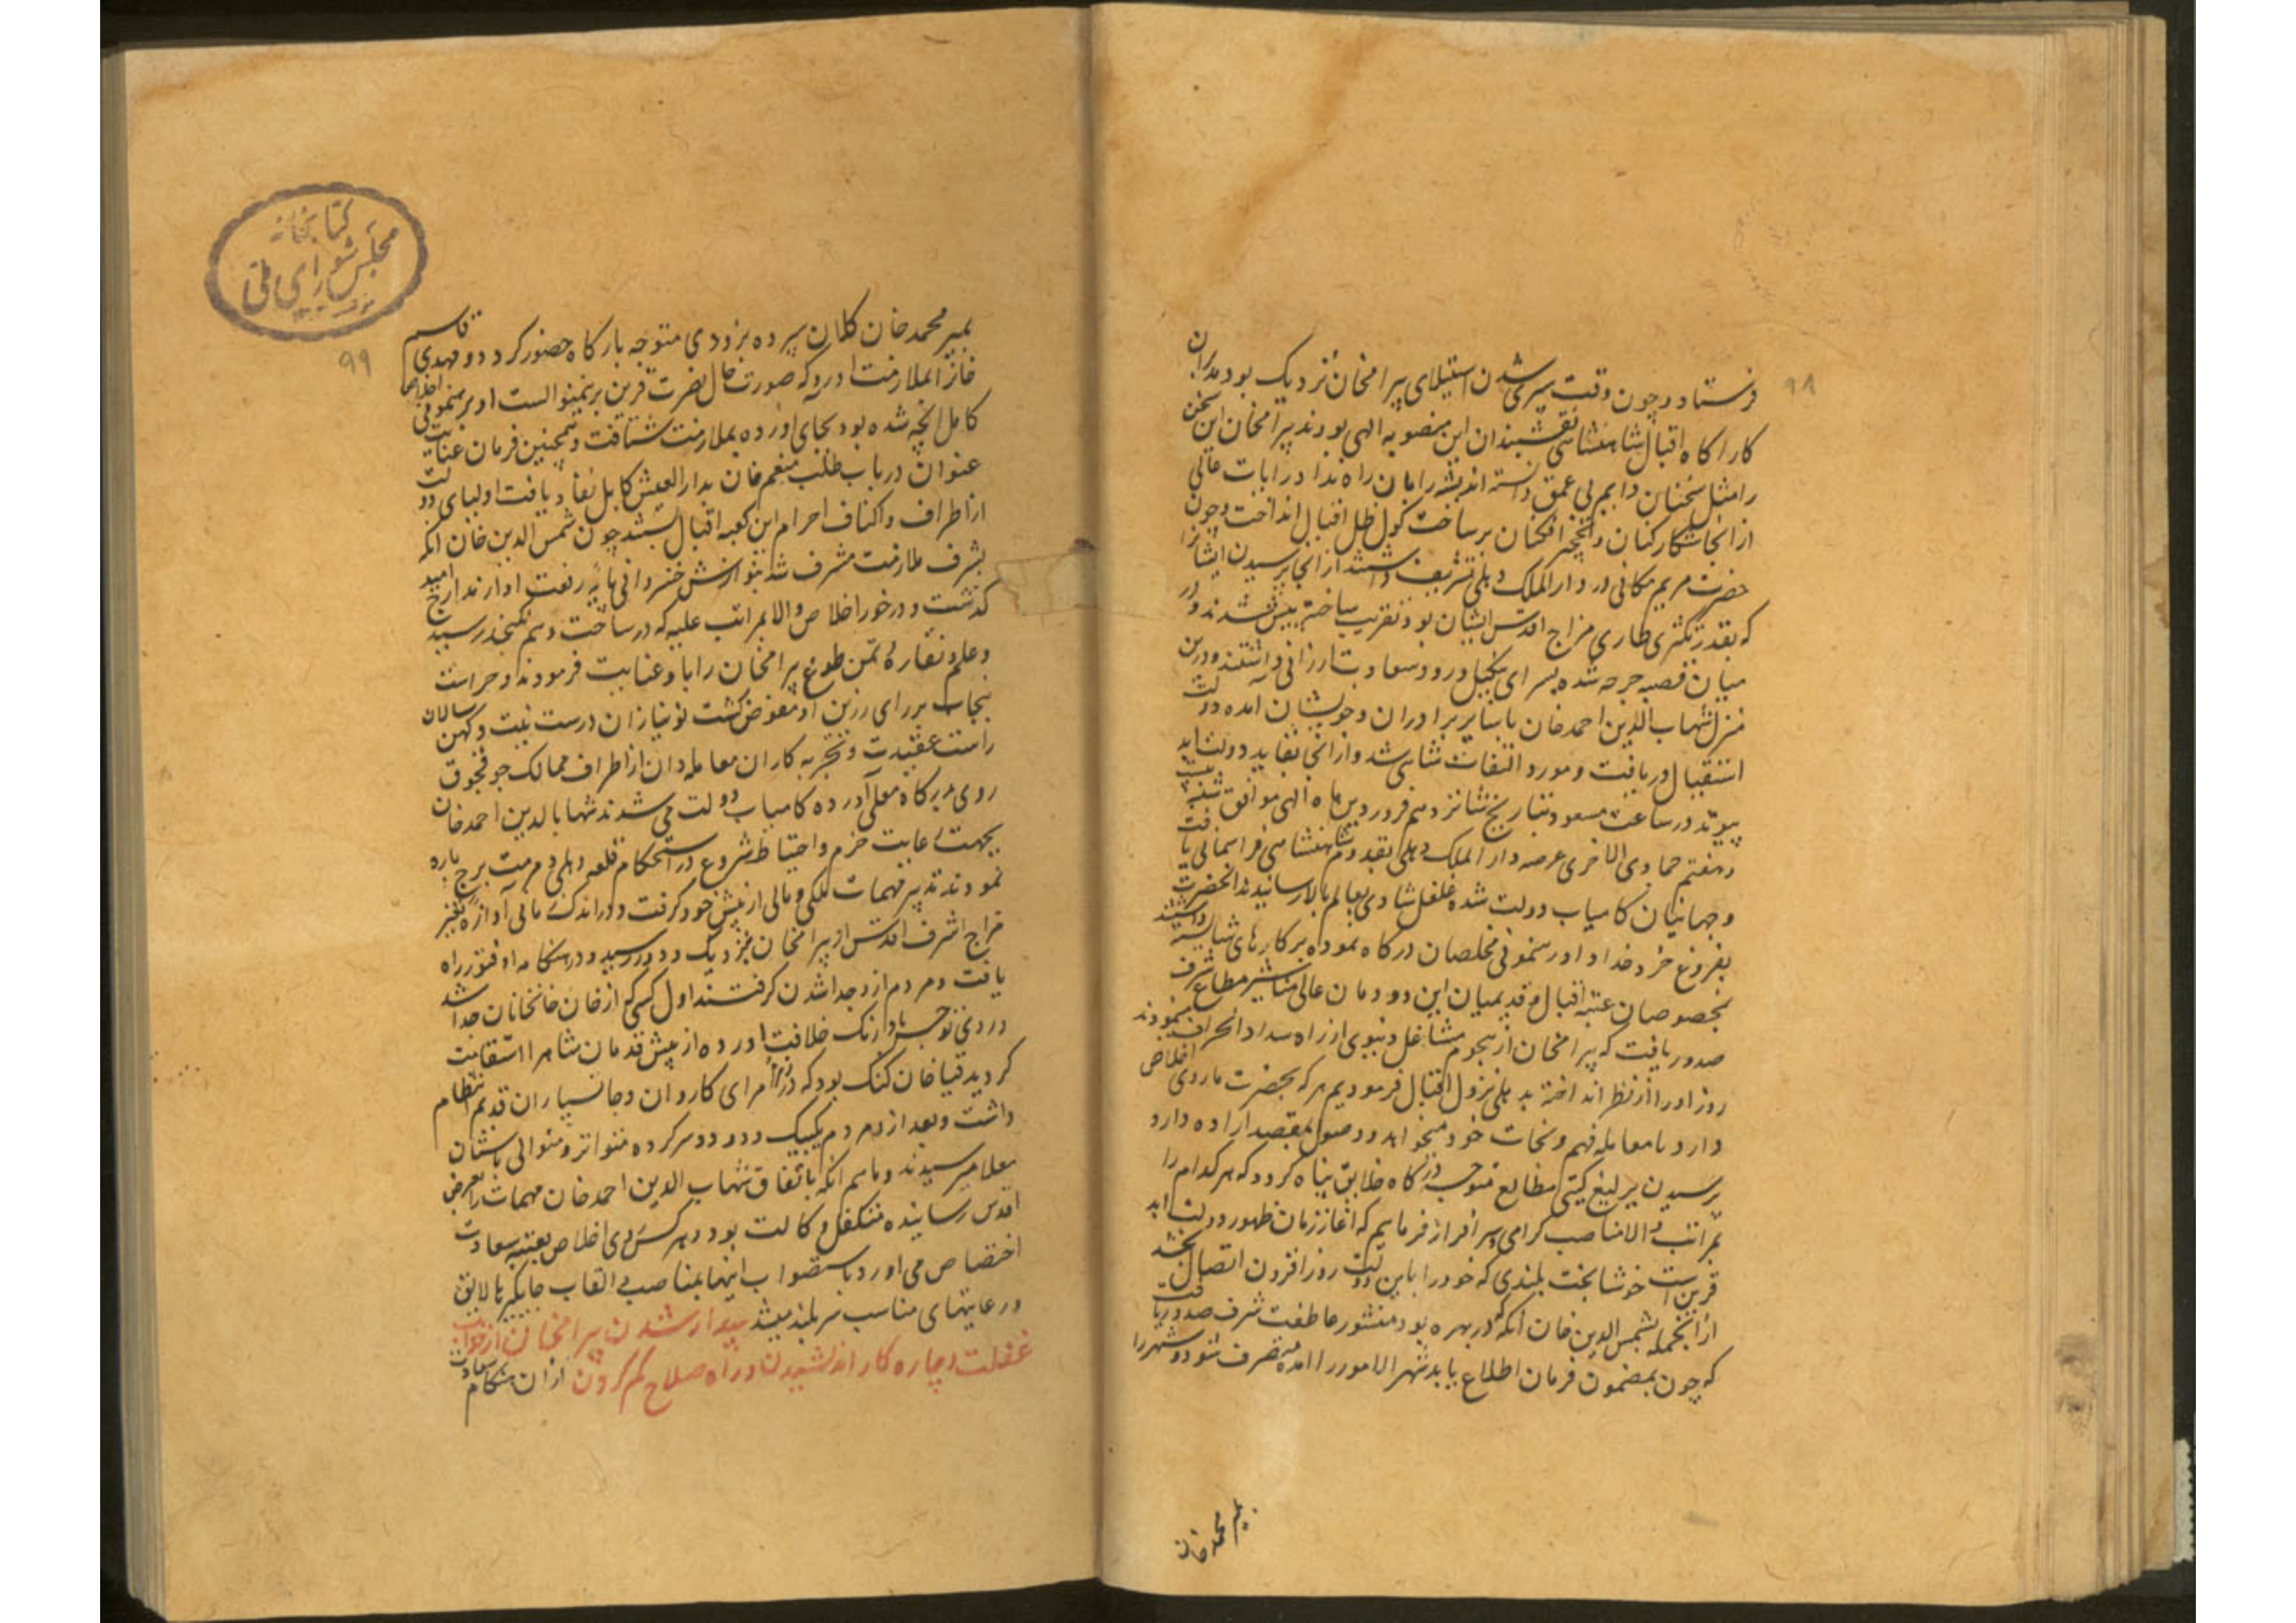 ۹۸
فرستاد و چون وقت سپری شدن استیلای بیرامخان نزدیک بود مدبران
کار اکاه اقبال شاهنشاهی نقشبندان این منصوبه الهی بودند بیرامخان این سخن
را مثل سخنان دایم بی عمق دانسته اندیشه را بان راه نداد رایات عالی
از انجا شکارکنان و نخچیر افکنان بر ساحت کول ظل اقبال انداخت و چون
حضرت مریم مکانی در دار الملک دهلی تشریف داشتند از انجا پرسیدن ایشانرا
که بقدر تکسری طاری مزاج اقدس ایشان بود تقریب ساخته پیش شدند و در
میان قصبه خرجه شده بسرای بکهیل ورود سعادت ارزانی داشتند و درین
منزل شهاب الدین احمد خان با سایر برادران و خویشان امده دولت
استقبال دریافت و مورد التفات شاهی شد و از انجا بقاید دولت ابد
پیوند در ساعت مسعود بتاریخ شانزدهم فروردین ماه الهی موافق شنبه بیست
و هفتم جمادی الاخری عرصه دار الملک دهلی بقدوم شاهنشاهی فر اسمانی یافت
و جهانیان کامیاب دولت شده غلغل شادی بعالم بالا رسانیدند انحضرت
بفروغ خرد خداداد رهنمونی مخلصان درکاه نموده بر کارهای شایسته داشتند
بخصوصان عتبه اقبال و قدیمیان این دودمان عالی مناشیر مطاع شرف
صدور یافت که بیرامخان از هجوم مشاغل دنیوی از راه سداد انحراف نمودند
روز او را از نظر انداخته بدهلی نزول اقبال فرمودیم هر که بحضرت ما روی اخلاص
دارد یا معامله فهم و نجات خود میخواهد و وصول بمقصد اراده دارد
برسیدن یرلیغ کیتی مطاع متوجه درکاه خلایق پناه کردد که هر کدام را
بمراتب والا مناصب کرامی سرافراز فرماییم که اغاز زمان ظهور دولت ابد
قرین است خوشا بخت بلندی که خود را باین دولت روز افزون اتصال بخشد
از انجمله بشمس الدین خان انکه که در بهره بود منشور عاطفت شرف صدور یافت
که چون بمضمون فرمان اطلاع یابد شهر لاهور را امده متصرف شود و شهر را
بمیر محمد خان
کتابخانه
مجلس شورای ملی
۹۹
بمیر محمد خان کلان سپرده بزودی متوجه بارکاه حضور کردد و مهدی قاسم
خانرا بملازمت اورد که صورت حال نصرت قرین برینمنوالست او برهنمونی اخلاص
کامل انچه شده بود بجای اورده بملازمت شتافت و همچنین فرمان عنایت
عنوان در باب طلب منعم خان بدار العیش کابل نفاذ یافت اولیای دولت
از اطراف و اکناف احرام این کعبه اقبال بستند چون شمس الدین خان انکه
بشرف ملازمت مشرف شد بنوازش خسروانی پایه رفعت او از مدارج امید
کذشت و درخور اخلاص والا بمراتب علیه که در ساخت وهم نکنجد رسید
و علم و نقاره و تمن طوغ بیرامخان را باو عنایت فرمودند و حراست
پنجاب بر رای رزین او مفوض کشت نونیازان درست نیت و کهن سالان
راست عقیدت و تجربه کاران معامله دان از اطراف ممالک جوق جوق
روی بدرکاه معلی آورده کامیاب دولت می شدند شهاب الدین احمد خان
بجهت رعایت حزم و احتیاط شروع در استحکام قلعه دهلی و مرمت برج و باره
نمودند تدبیر مهمات ملکی و مالی از پیش خود کرفت و در اندک زمانی آوازه تغییر
مزاج اشرف اقدس از بیرامخان بنزدیک و دور رسید و در هنکامه او فتور راه
یافت و مردم ازو جدا شدن کرفتند اول کسی که از خان خانخانان جدا شد
و روی توجه باورنک خلافت اورده از پیش قدمان شاهراه استقامت
کردید قیا خان کنک بود که در زمره امرای کاروان و جانسپاران قدیم انتظام
داشت و بعد ازو مردم یکیک و دو دو سر کرده متواتر و متوالی باستان
معلا میرسیدند و ماهم انکه باتفاق شهاب الدین احمد خان مهمات را بعرض
اقدس رسانیده متکفل وکالت بود و هر کس روی اخلاص بعتبه سعادت
اختصاص می اورد باستصواب اینها بمناصب و القاب جایکیر لایق
و رعایتهای مناسب سربلند میشد بیدار شدن بیرامخان از خواب
غفلت و چاره کار اندیشیدن و راه صلاح کم کردن از ان هنکام سعادت